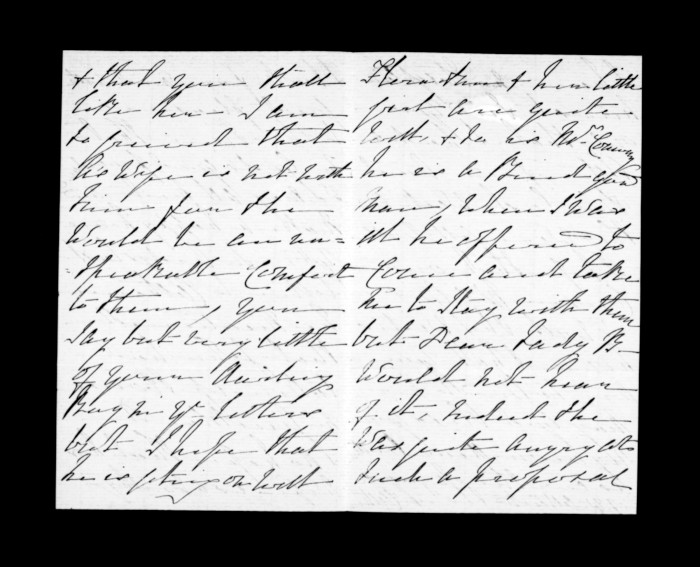 & that you shall
like her - I am
so grieved that
his wife is not with
him for she
would be an un=
=speakable comfort
to them, you
say but very little
of your darling
Boy in yr letters
but I hope that
he is going on well
Flora & her little
are quite
well, & so is Mr.
he is a kind good
man, when I was
ill he offered to
come and take
me to stay with them
but Dear Lady B-
would not hear
of it, indeed she
was quite angry at
such a proposal